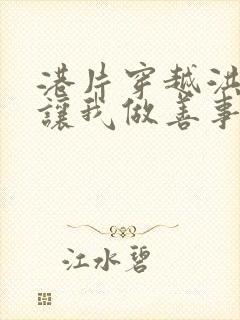 港片穿越洪
讓我做善事
江水碧